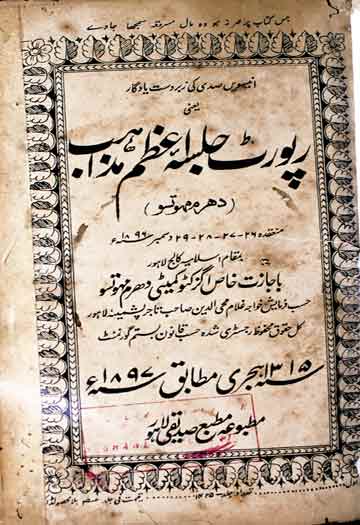 جس کتاب پر مہر نہ ہو وہ مال مسروقہ سمجھا جاوے
انیسویں صدی کی زبردست یادگار
یعنی
رپورٹ جلسۂ اعظم مذاہب
(دھرم مہوتسو)
منعقدہ ۲۶-۲۷-۲۸-۲۹ دسمبر ۱۸۹۶ء
بمقام اسلامیہ کالج لاہور
باجازت خاص اگزکٹو کمیٹی دھرم مہوتسو
حسب فرمایش خواجہ غلام محی الدین صاحب تاجر پشمینہ لاہور
کل حقوق محفوظ رجسٹری شدہ حسب قانون بستم گورنمنٹ
۱۳۱۵ سنہ ہجری مطابق سنہ ۱۸۹۷ء
مطبوعہ مطبع صدیقی لاہور
تعداد جلد قیمت فی جلد بلا محصولڈاک